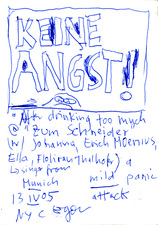 KEINE
ANGST!
"After drinking too much
@ "Zum Schneider"
w/ Johanna, Erich Moenius,
Ella, Florian Thalhofer) a
from
Munich mild panic
13 IV 05 attack.
NYC